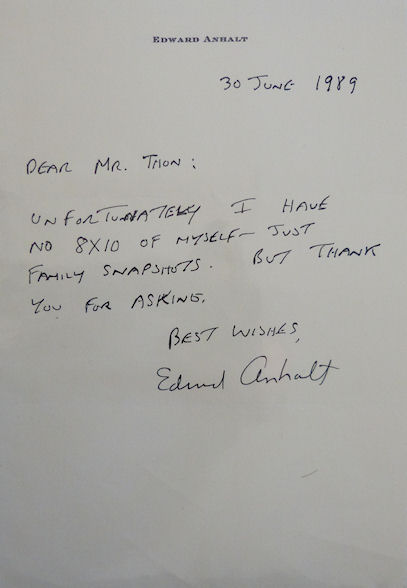 EDWARD ANHALT
30 JUNE 1989
DEAR MR. THON:
UNFORTUNATELY I HAVE
NO 8X10 OF MYSELF- JUST
FAMILY SNAPSHOTS. BUT THANK
YOU FOR ASKING.
BEST WISHES,
Edward Anhalt